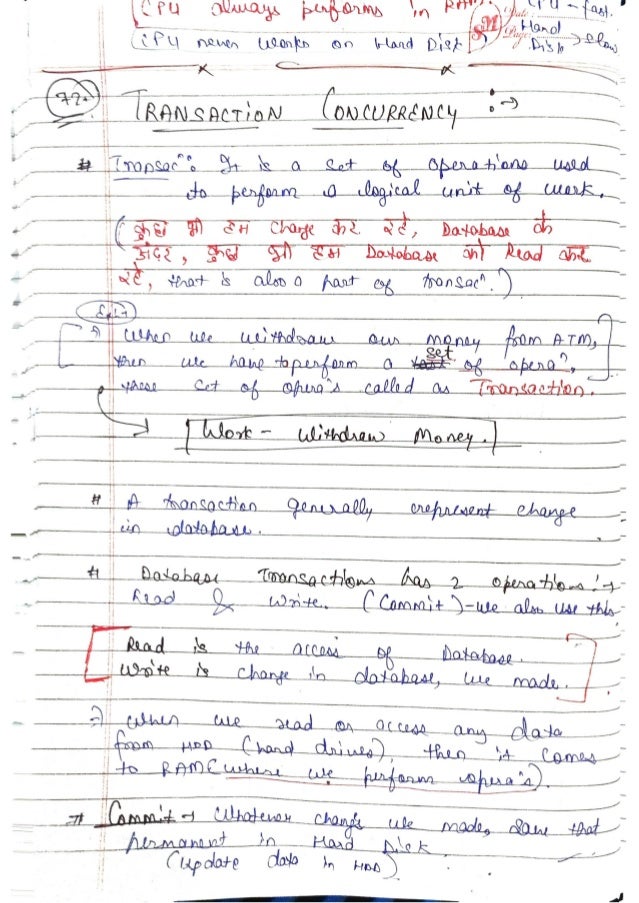 CPU always performs in RAM
CPU - fast.
Hand Disk → Slow
CPU never works on Hard Disk
72.
TRANSACTION CONCURRENCY :→
# Transacⁿ: It is a set of operations used
to perform a logical unit of work.
(कुछ भी हम Change कर रहे, Database के
अंदर, कुछ भी हम Database को Read कर
रहे, that is also a part of transacⁿ.)
Ex:→
⇒ When we withdraw our money from ATM,
then we have to perform a set of operaⁿ,
these set of operaⁿs called as Transaction.
Work - Withdraw Money.
# A transaction generally represent change
in database.
# Database Transactions has 2 operations:→
Read & Write. (Commit) - we also use this
Read is the access of Database.
Write is change in database, we made.
⇒ When we read or access any data
from HDD (hard drives), then it comes
to RAM (where we perform operaⁿs).
⇒ Commit → Whatever changes we made, save that
permanent in Hard Disk
(Update data in HDD)